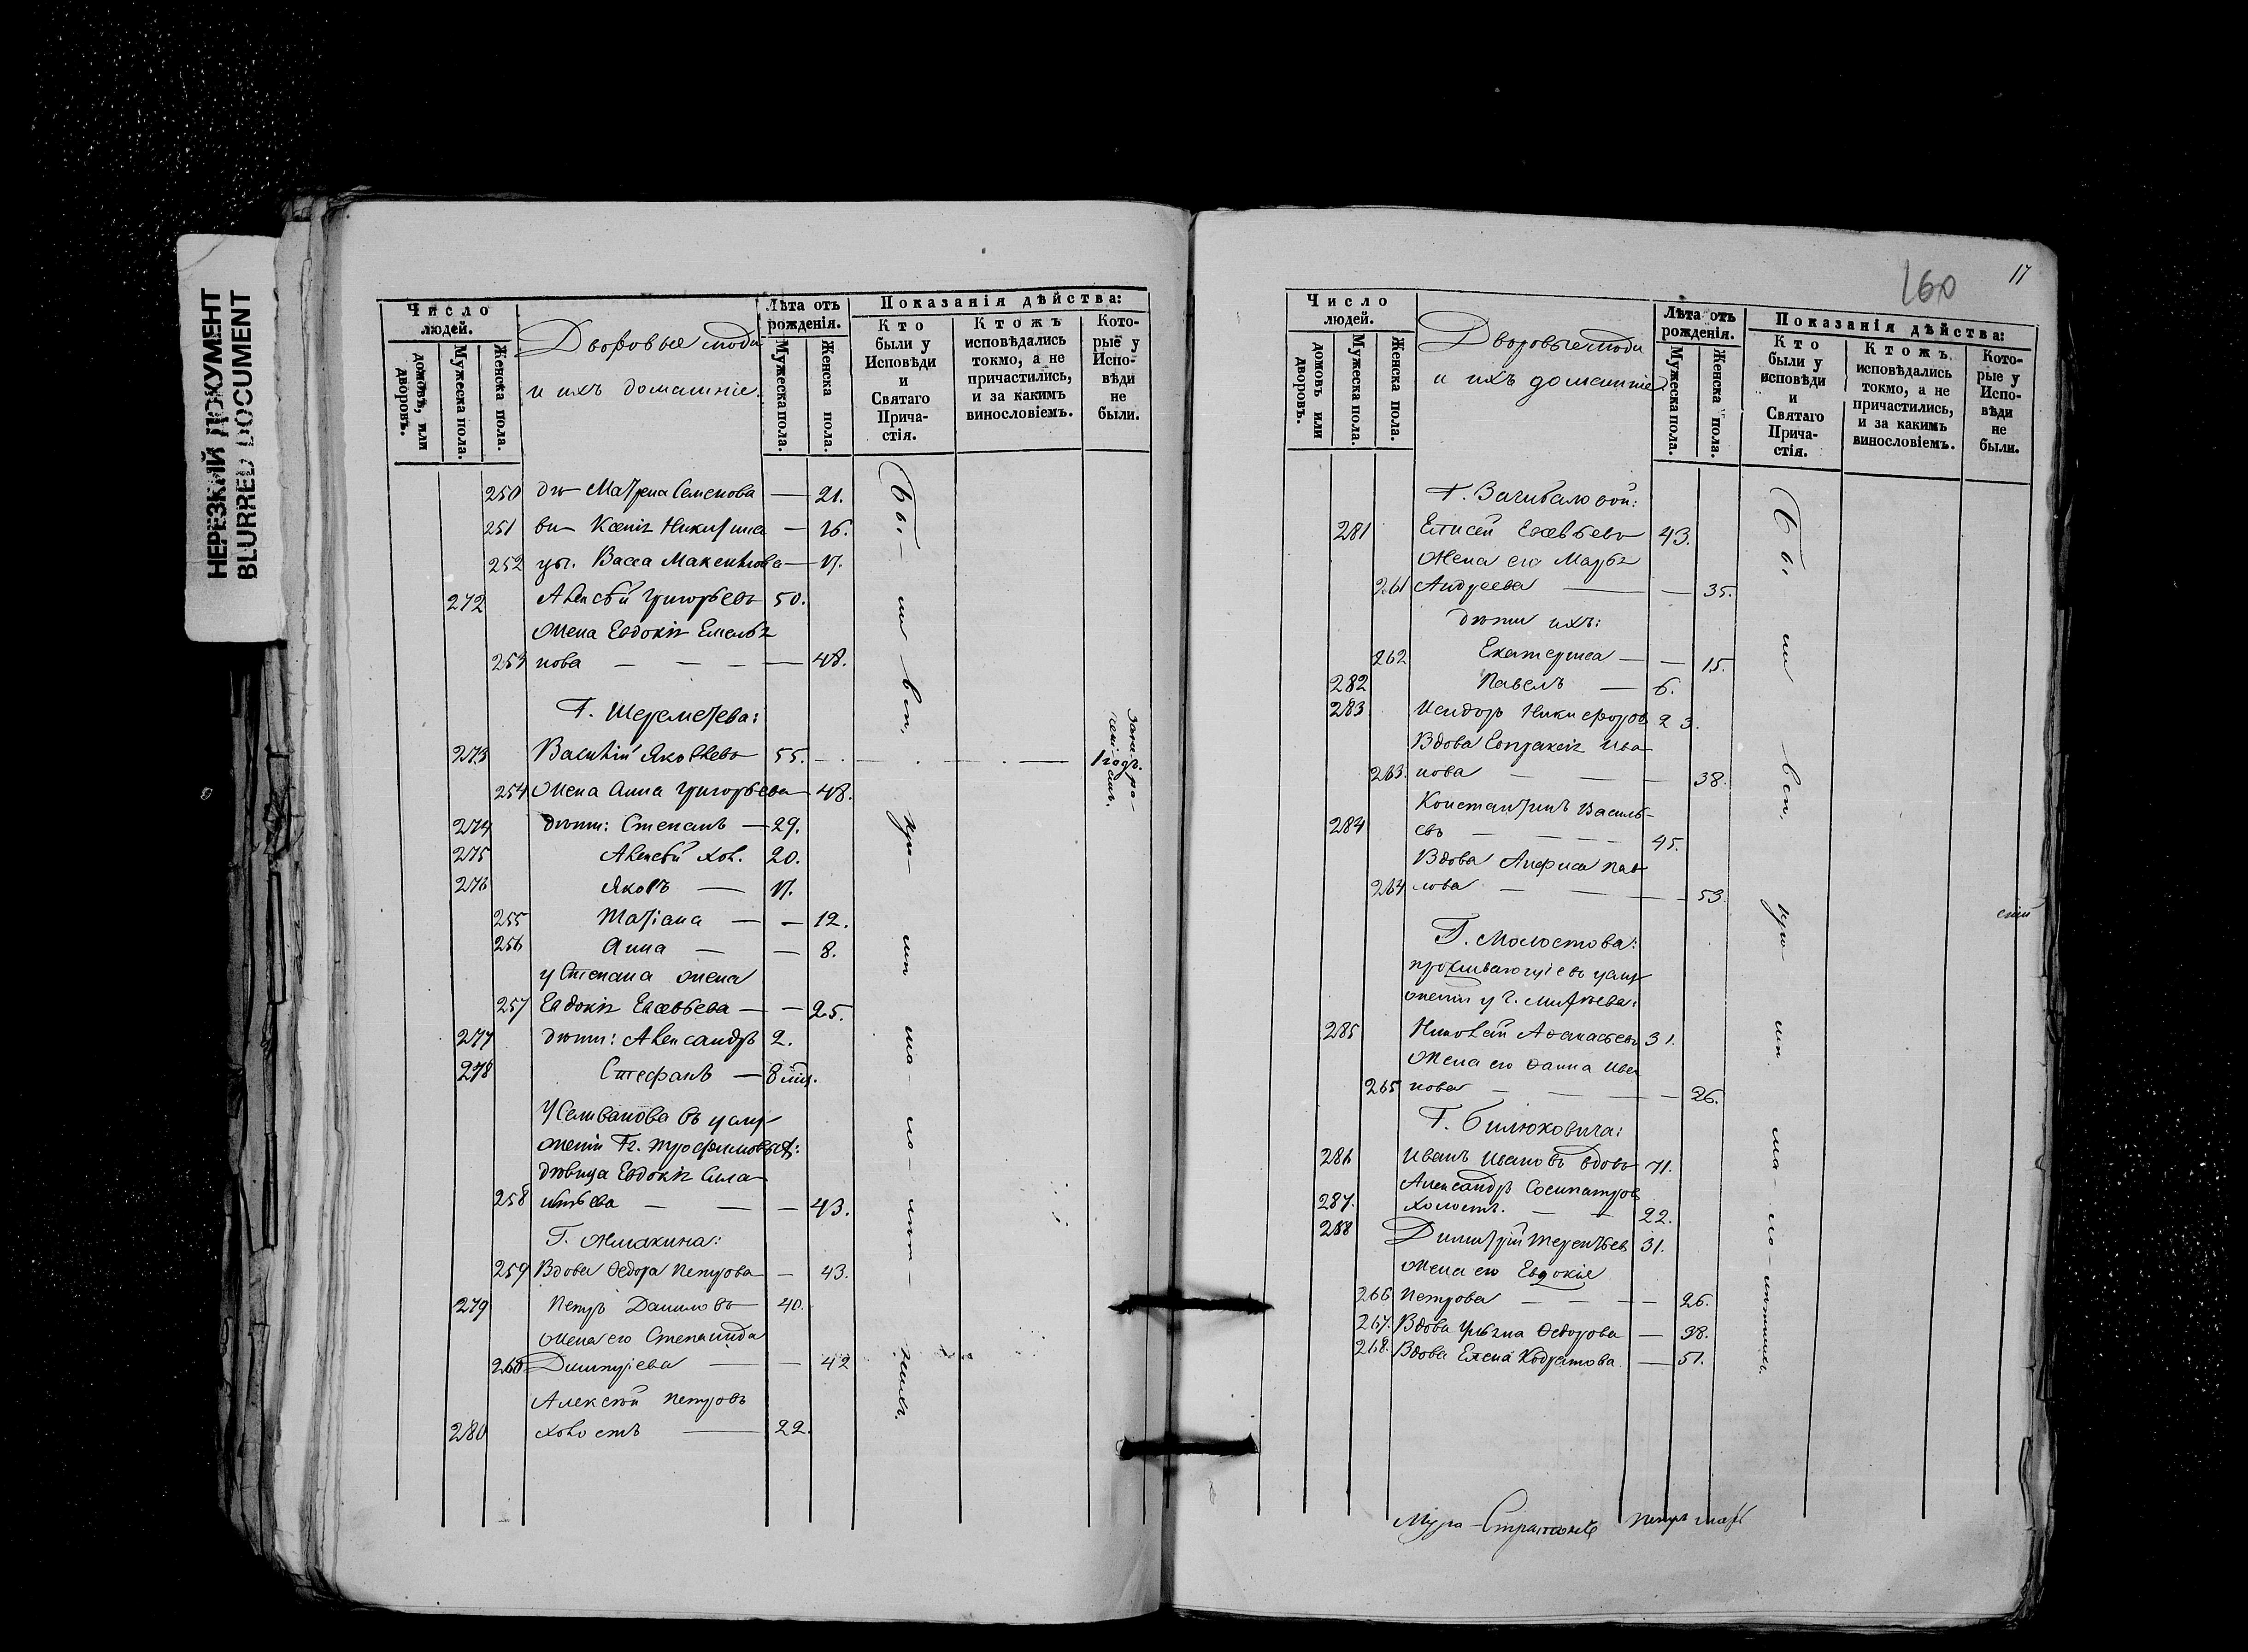 НЕРЕЗКИЙ ДОКУМЕНТ
BLURRED DOCUMENT
Число людей.
домовъ, или дворовъ.
Мужеска пола.
Женска пола.
Дворовые люди
и ихъ домашніе.
Лѣта отъ рожденія.
Мужеска пола.
Женска пола.
Показанія дѣйства:
Кто были у Исповѣди и Святаго Прича-стія.
Ктожъ исповѣдались токмо, а не причастились, и за какимъ винословіемъ.
Кото-рые у Испо-вѣди не были.
250 дѣ- Матрена Семенова — 21.
251 ви- Ксенія Никитина — 16.
252 цы. Васса Максимова — 17.
272 Алексѣй Григорьевъ 50.
жена Евдокія Емелья
253 нова — — — — 48.
Г. Шереметева:
273 Василій Яковлевъ 55.
1 годъ.
254 Жена Анна Григорьева — 48.
274 дѣти: Степанъ — 29.
275 Алексѣй хол. 20.
276 Яковъ — 17.
255 Татіана — — 12.
256 Анна — — 8.
у Степана жена
257 Евдокія Евсевьева — — 25.
277 дѣти: Александръ 2.
278 Стефанъ — 8 мѣс.
У Селиванова въ услу-
женіи Гг. Трофимовыхъ:
дѣвица Евдокія Сила
258 нтьева — — — 43.
Г. Жмакина:
259 Вдова Ѳедора Петрова — 43.
279 Петръ Даниловъ 40.
жена его Степанида
260 Димитріева — — 42
Алексѣй Петровъ
280 холостъ — 22.
Бы- ли вси, при- ча-
160
17
Число людей.
домовъ или дворовъ.
Мужеска пола.
Женска пола.
Дворовые люди
и ихъ домашніе
Лѣта отъ рожденія.
Мужеска пола.
Женска пола.
Показанія дѣйства:
Кто были у исповѣди и Святаго Прича-стія.
Ктожъ исповѣдались токмо, а не причастились, и за какимъ винословіемъ.
Кото-рые у Испо-вѣди не были.
Г. Загибаловой:
281 Елисей Евсевьевъ 43.
Жена его Марѳа
261 Андреева — — 35.
дѣти ихъ:
262 Екатерина — — 15.
282 Павелъ — 6.
283 Исидоръ Никифоровъ 23.
Вдова Евпраксія Ива
263. нова — — — 38.
Константинъ Василь-
284 евъ — — — 45.
Вдова Анфиса Пав
264 лова — — — 53.
Г. Молостова:
проживающіе въ услу
женіи у г. Митѣева:
285 Николай Аѳанасьевъ 31.
Жена его Ѳаина Ива
265 нова — — — 26.
Г. Билюковича:
286 Иванъ Ивановъ вдовъ 71.
Александръ Сосипатров
287. холостъ. — — 22.
288 Димитрій Терентьев 31.
жена его Евдокія
266 Петрова — — — 26.
267. Вдова Ульяна Ѳедорова — 38.
268. Вдова Елена Кодратова — 51.